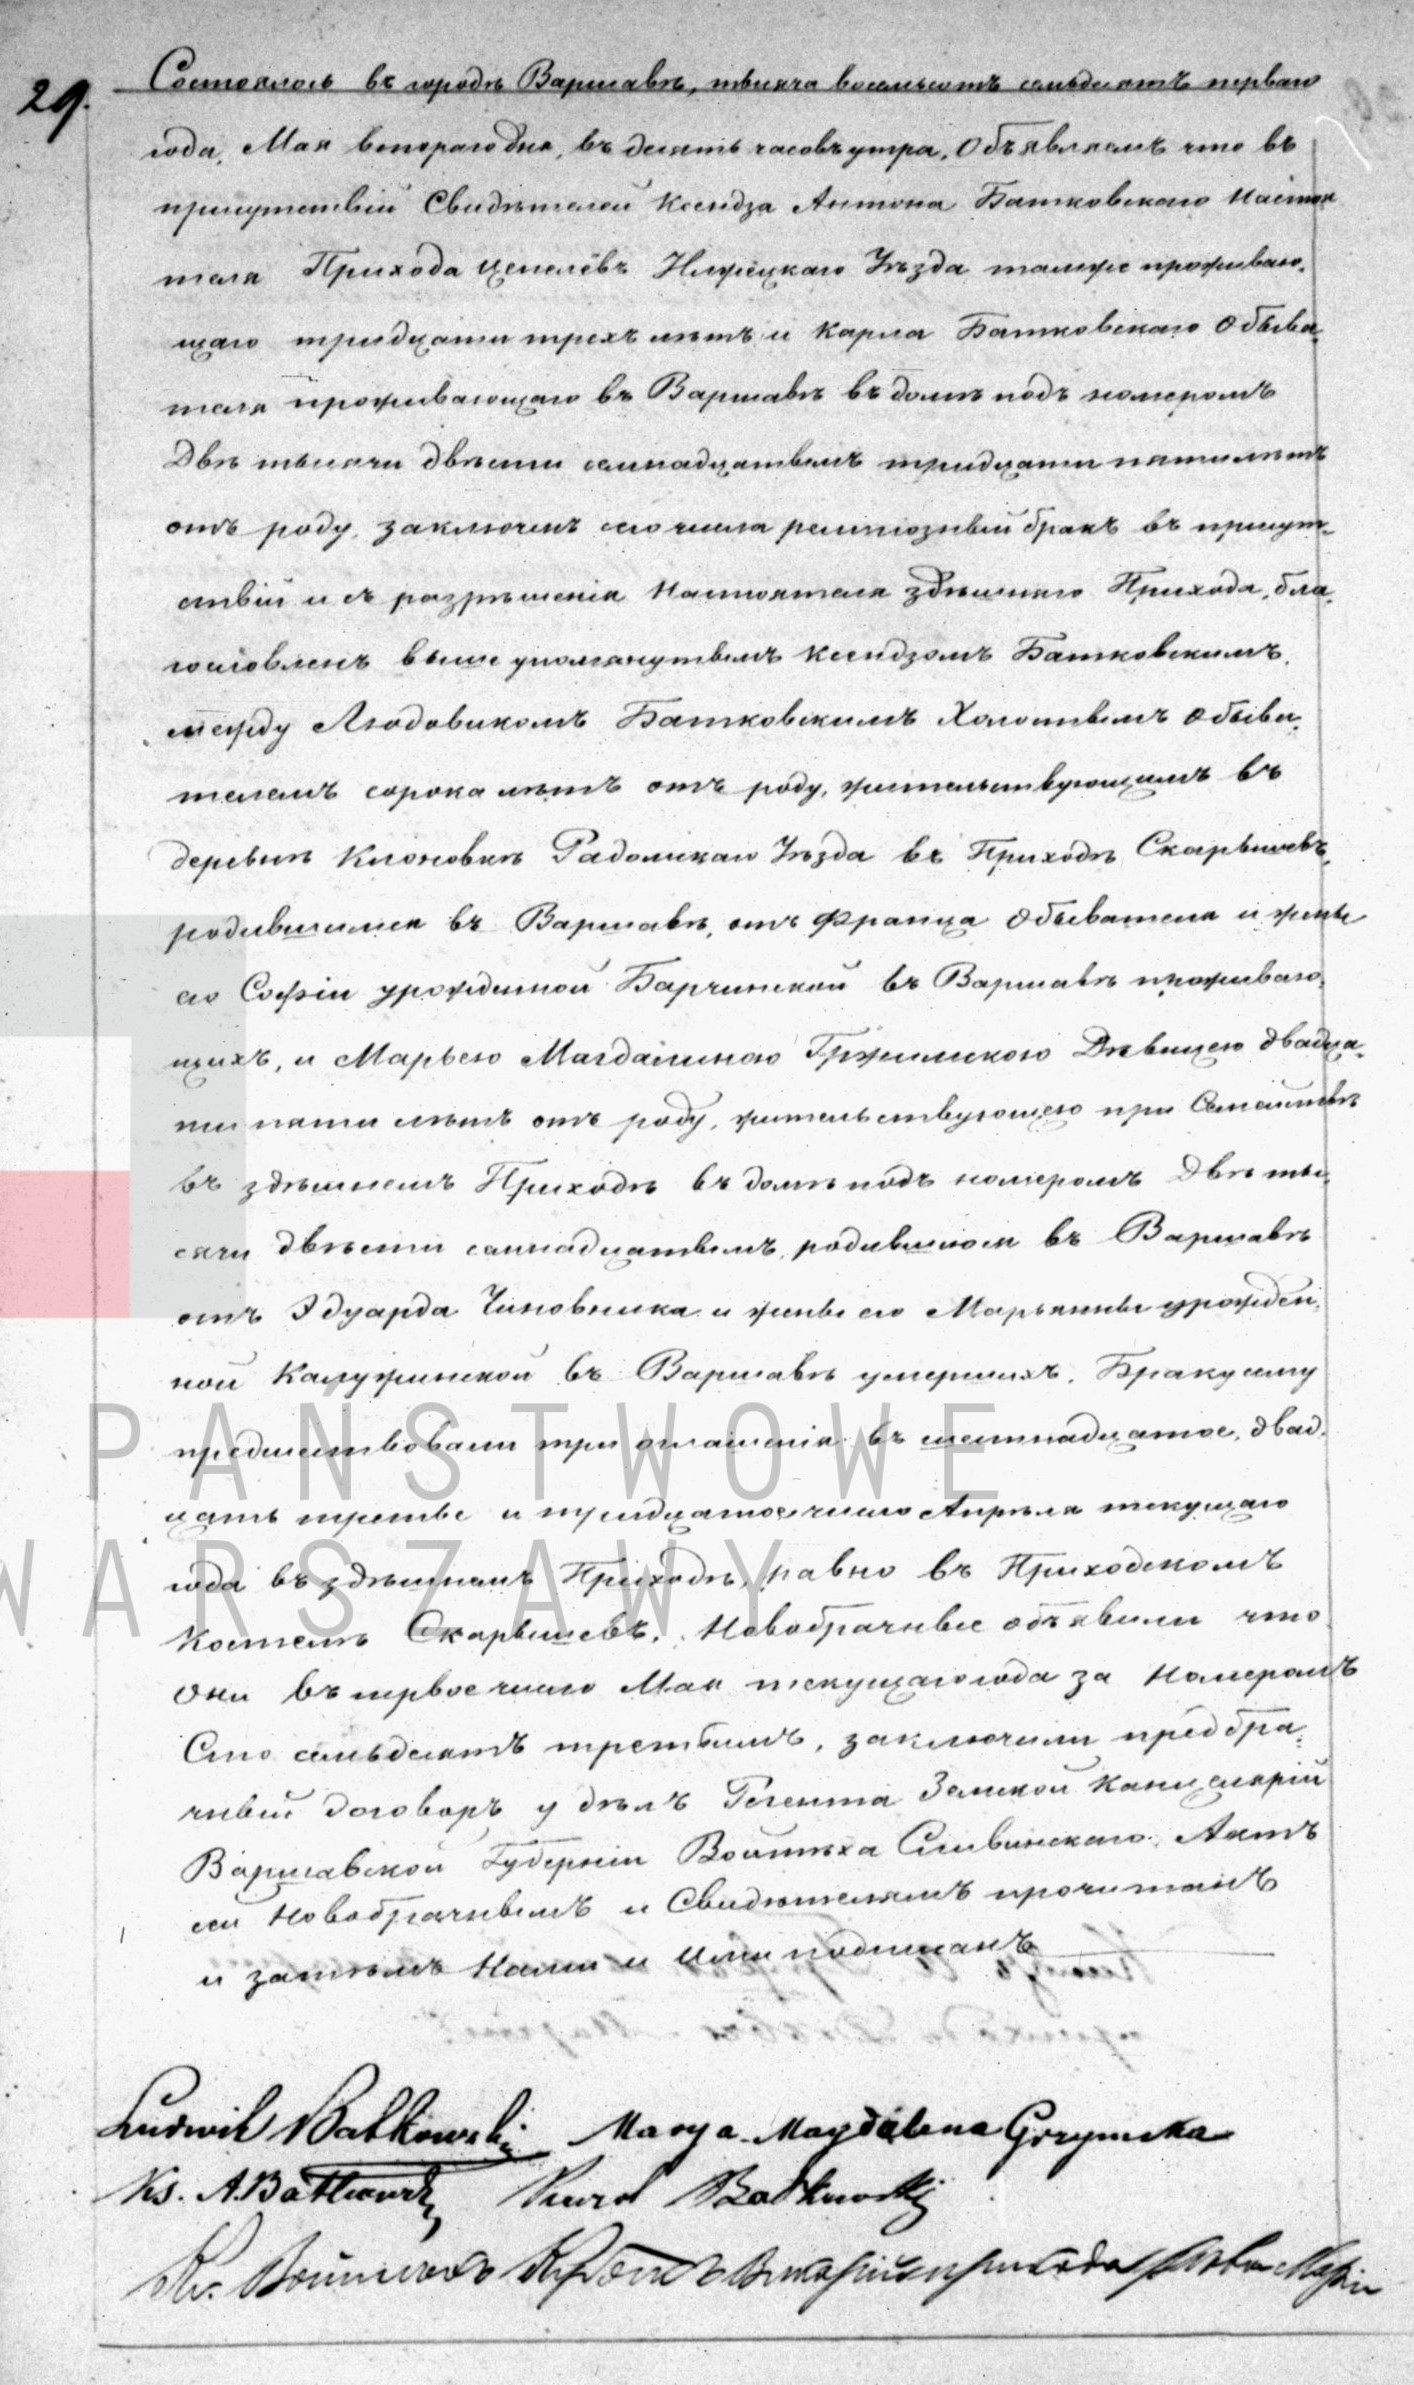 29.
Состоялось въ городѣ Варшавѣ, тысяча восемьсотъ семьдесятъ перваго
года, Мая втораго дня, въ десять часовъ утра. Объявляемъ что въ
присутствіи Свидѣтелей Ксендза Антона Батковскаго Настоя
теля Прихода Цепелёвъ Илжецкаго Уѣзда тамже проживаю-
щаго тридцати трехъ лѣтъ и Карла Батковскаго Обыва-
теля проживающаго въ Варшавѣ въ домѣ подъ номеромъ
Двѣ тысячи двѣсти семнадцатымъ тридцати пяти лѣтъ
отъ роду, заключенъ сего числа религіозный бракъ въ присут-
ствій и съ разрѣшенія Настоятеля здѣшняго Прихода, бла-
гословленъ выше упомянутымъ Ксендзомъ Батковскимъ,
между Людовикомъ Батковскимъ Холостымъ Обыва-
телемъ сорока лѣтъ отъ роду, жительствующимъ въ
деревнѣ Клоновкѣ Радомскаго Уѣзда въ Приходѣ Скарышевъ,
родившимся въ Варшавѣ, отъ Франца Обывателя и жены
его Софіи урожденной Барчинской въ Варшавѣ проживаю-
щихъ, и Марьею Магдалиною Гржимскою Дѣвицею двадца-
ти пяти лѣтъ отъ роду, жительствующею при Семействѣ
въ здѣшнемъ Приходѣ въ домѣ подъ номеромъ Двѣ ты-
сячи двѣсти семнадцатымъ, родившеюся въ Варшавѣ
отъ Эдуарда Чиновника и жены его Марьянны урожден-
ной Калужинской въ Варшавѣ умершихъ. Браку сему
предшествовали три оглашенія въ шестнадцатое, двад-
цать третье и тридцатое число Апрѣля текущаго
года въ здѣшнемъ Приходѣ, равно въ Приходскомъ
Костелѣ Скарышевъ. Новобрачные объявили что
они въ первое число Мая текущаго года за Номеромъ
Сто семьдесятъ третьимъ, заключили предбра-
чный договоръ у дѣлъ Регента Земской Канцелярій
Варшавской Губерніи Войтѣха Сливинскаго. Актъ
сей Новобрачнымъ и Свидѣтелямъ прочитанъ
и затѣмъ Нами и Ими подписанъ
Ludwik Batkowski Marya Magdalena Grzymska
Ks. A. Batkowski Karol Batkowski
Кс. Войцехъ Викарій прихода Дѣвы Маріи
PAŃSTWOWE
WARSZAWY